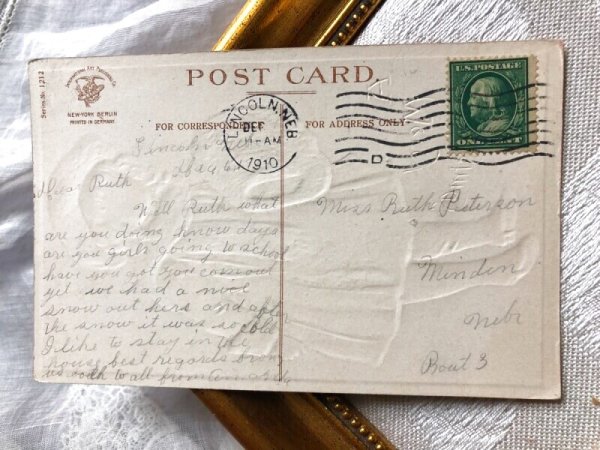 POST CARD.
International Art Publishing Co.
NEW-YORK BERLIN
PRINTED IN GERMANY
Series No. 1,212
FOR CORRESPONDENCE
FOR ADDRESS ONLY
LINCOLN, NEB
DEC
-AM
1910
D
U.S. POSTAGE
ONE CENT
Lincoln
Dear Ruth
Well Ruth what
are you doing know days
are you girls going to school
have you got you
yet we had a nice
snow out hers and after
the snow it was so cold
I like to stay in the
house best regards from
us both to all from
Miss Ruth Peterson
Minden
Nebr
Rout 3